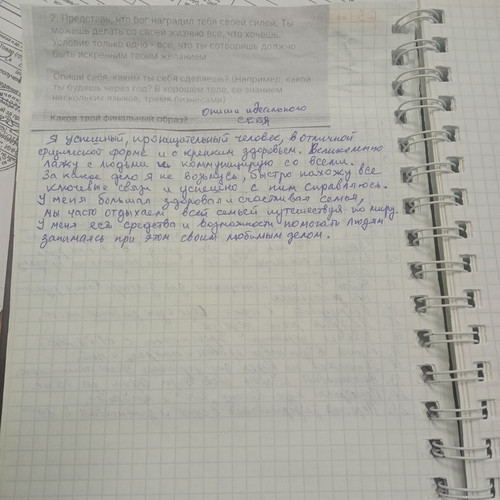 7. Представь, что бог наградил тебя своей силой. Ты
можешь делать со своей жизнью все, что хочешь.
Условие только одно - все, что ты сотворишь должно
быть искренним твоим желанием.
Опиши себя, каким ты себя сделаешь? (Например, какой
ты будешь через год? В хорошем теле, со знанием
нескольких языков, тремя бизнесами)
Каков твой финальный образ?
Опиши идеального
СЕБЯ
Я успешный, проницательный человек, в отличной
физической форме и с крепким здоровьем. Великолепно
лажу с людьми и коммуницирую со всеми.
За какое дело я не возьмусь, быстро нахожу все
ключевые связи и успешно с ним справляюсь.
У меня большая здоровая и счастливая семья,
мы часто отдыхаем всей семьей путешествуя по миру.
У меня есть средства и возможности помогать людям
занимаясь при этом своим любимым делом.